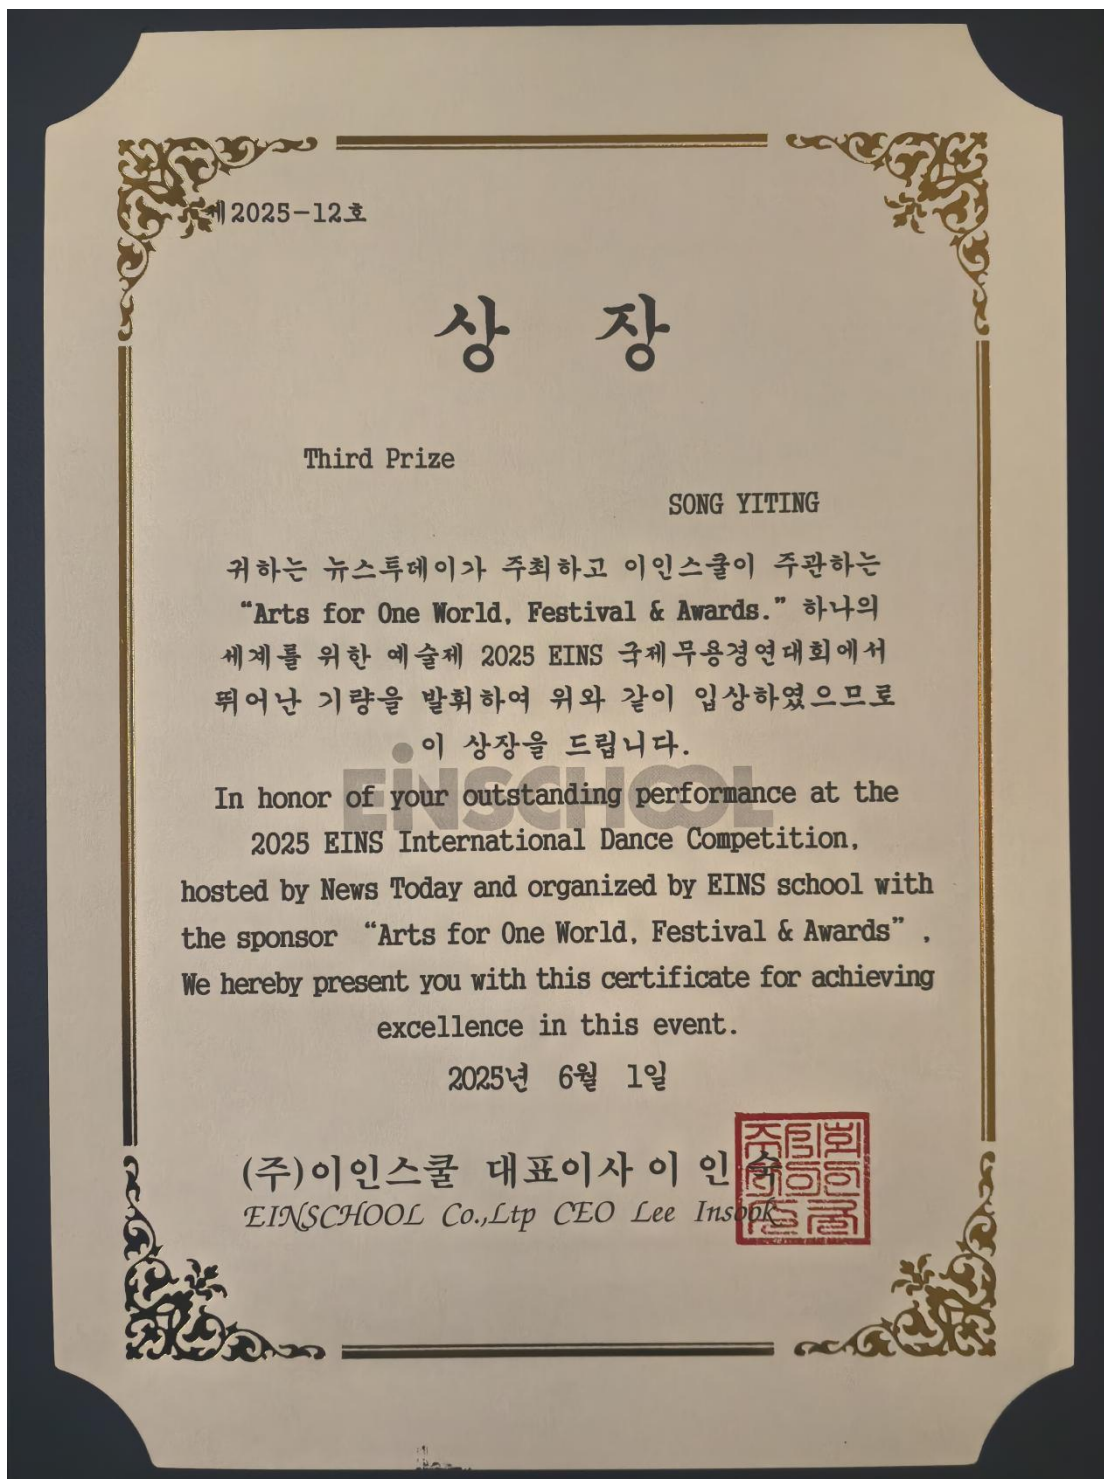 제2025-12호
상 장
Third Prize
SONG YITING
귀하는 뉴스투데이가 주최하고 이인스쿨이 주관하는
“Arts for One World, Festival & Awards.” 하나의
세계를 위한 예술제 2025 EINS 국제무용경연대회에서
뛰어난 기량을 발휘하여 위와 같이 입상하였으므로
이 상장을 드립니다.
EiNSCHOOL
In honor of your outstanding performance at the
2025 EINS International Dance Competition,
hosted by News Today and organized by EINS school with
the sponsor “Arts for One World, Festival & Awards” ,
We hereby present you with this certificate for achieving
excellence in this event.
2025년 6월 1일
(주)이인스쿨 대표이사 이 인 숙
EINSCHOOL Co.,Ltp CEO Lee Insook